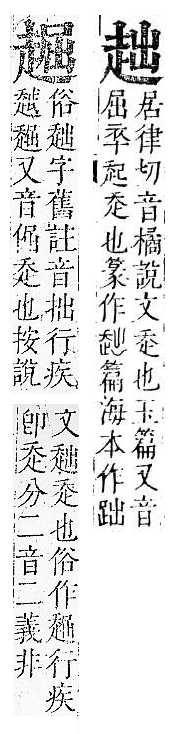 趉
居律切音橘說文走也玉篇又音
屈卒起走也篆作趉篇海本作䟣
䞷
俗趉字舊註音拙行疾
趉䞷又音倔走也按說
文趉走也俗作䞷行疾
卽走分二音二義非